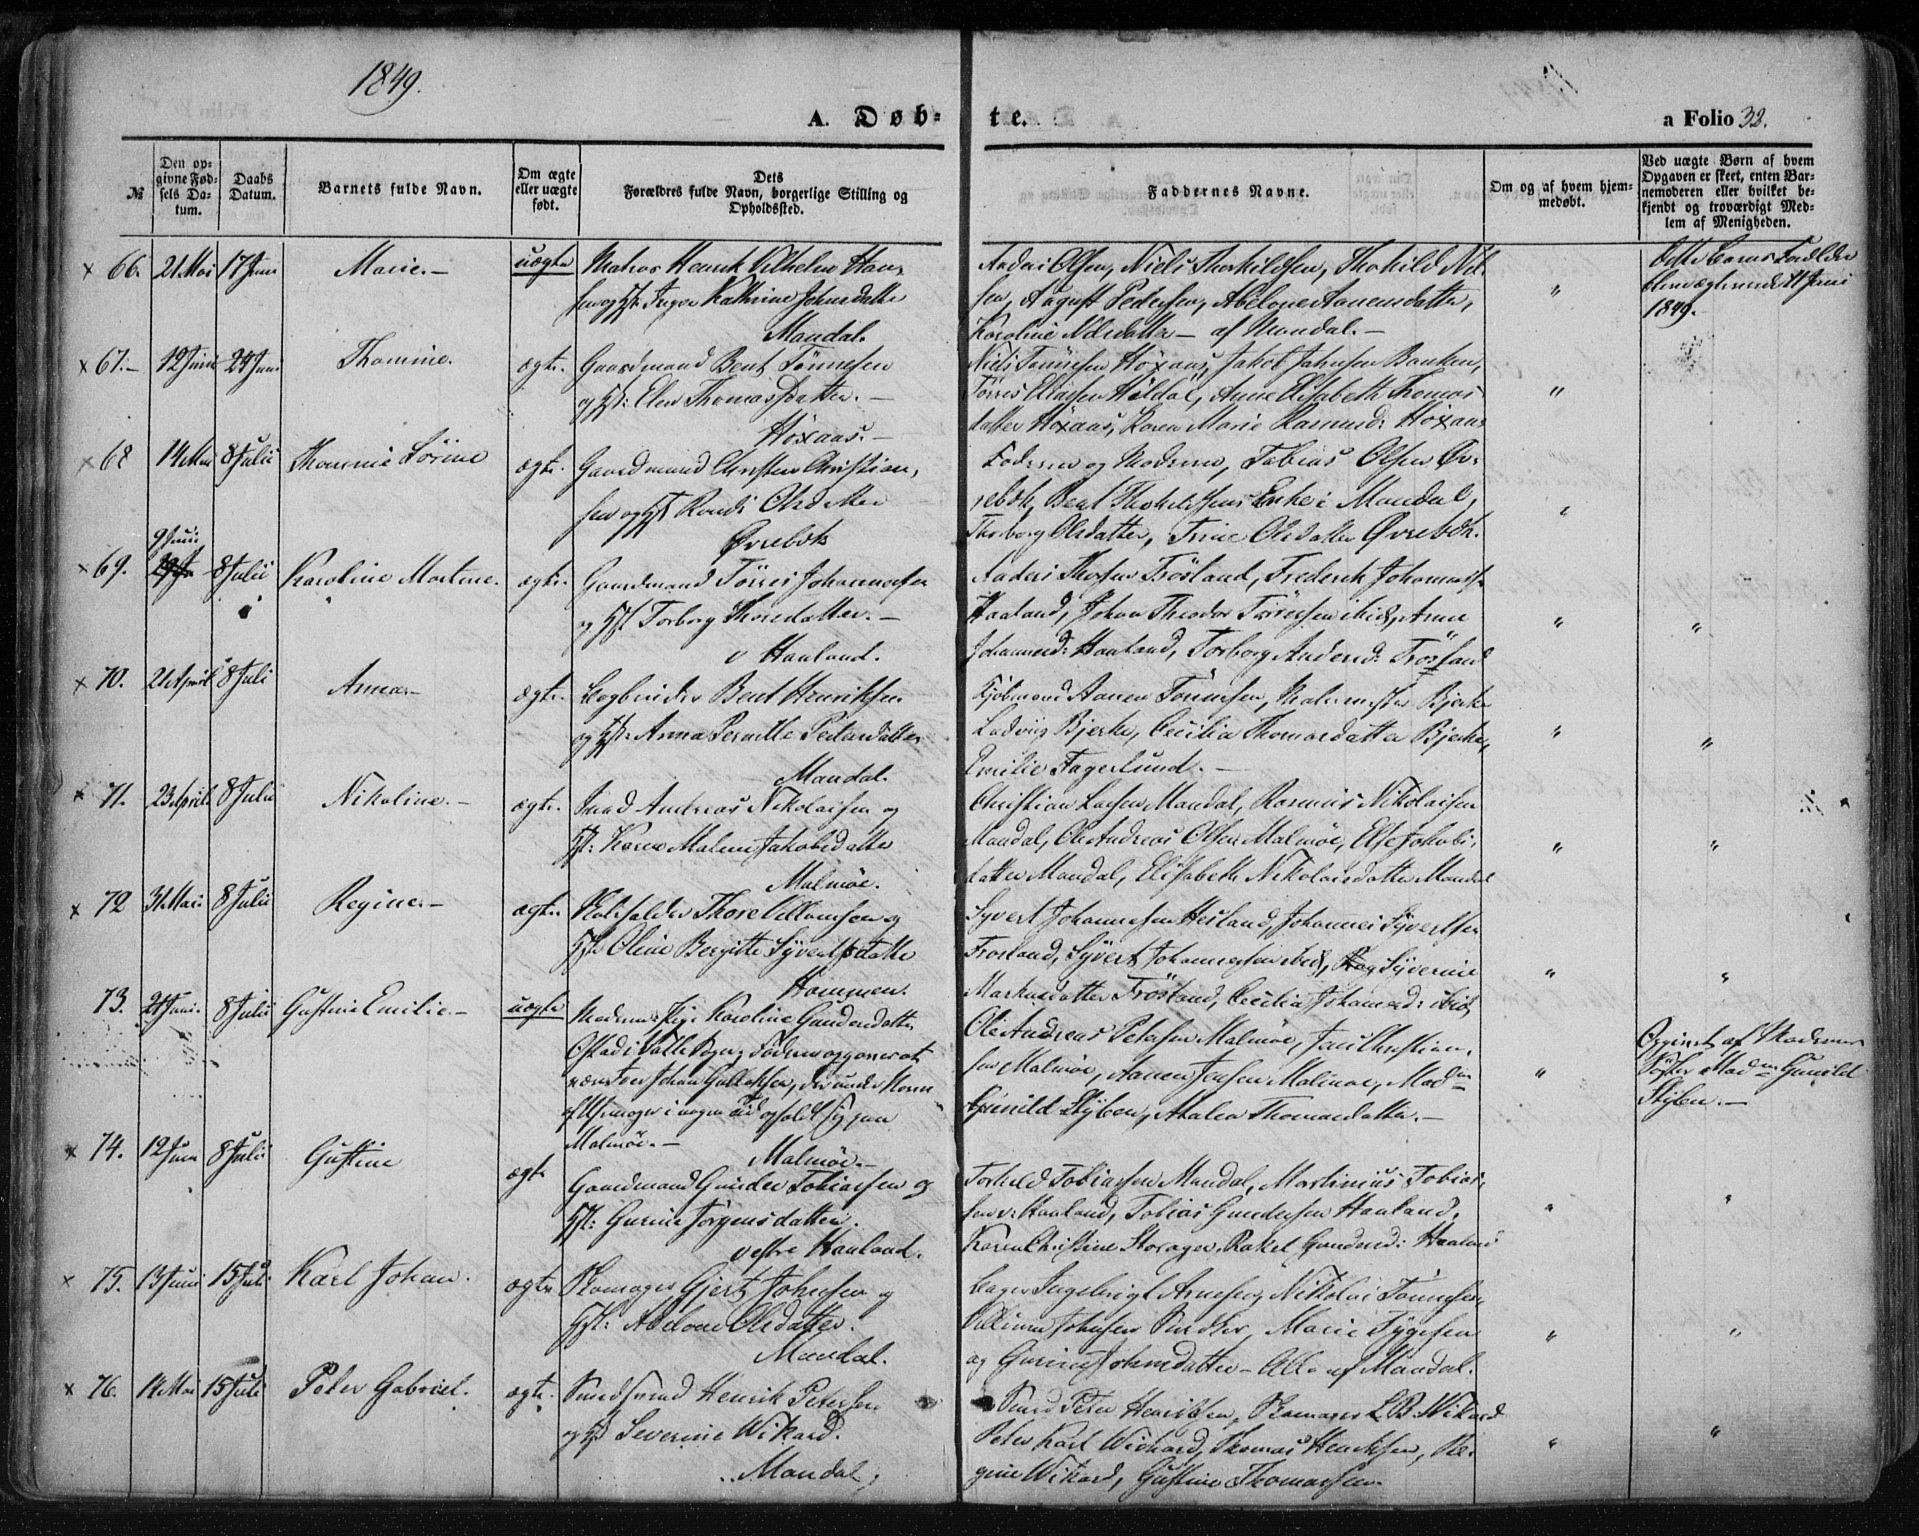 1849.
A. Døb-
te.
a Folio 32.
№
Den op-
givne Fød-
sels Da-
tum.
Daabs
Datum.
Barnets fulde Navn.
Om ægte
eller uægte
født.
Dets
Forældres fulde Navn, borgerlige Stilling og
Opholdssted.
Faddernes Navne.
Om og af hvem hjem-
medøbt.
Ved uægte Børn af hvem
Opgaven er skeet, enten Bar-
nemoderen eller hvilket be-
kjendt og troværdigt Med-
lem af Menigheden.
× 66. 21 Mai 17 Juni Marie.— uægte Matros Henrik Vilhelm Han-
sen og Hst: Inger Kathrine Johnsdatter
Mandal.
Anders Olsen, Niels Thorkildsen, Thorkild Nil-
sen, August Pedersen, Abelone Aanensdatter,
Karoline Nilsdatter — af Mandal.—
"
Dette Barns Forældre
bleve ægteviede 21 Juni
1849.
× 67.— 12 Juni 24 Juni Thomine. ægte. Gaardmand Bent Tønnesen
og Hst: Elen Thomasdatter.—
Høxaas.—
Niels Tønnesen Høxaas, Jakob Jahnsen Banken,
Tørres Eliasen Holdal, Anne Elisabeth Thomas-
datter Høxaas, Karen Marie Rasmusd: Høxaas
"
× 68 14 Mai 8 Julii Thomine Sørine ægte. Gaardmand Christen Christian-
sen og Hst Randi Olsdatter
Øvrebøk
Faderen og Moderen, Tobias Olsen Øv-
rebøk, Bent Thorkildsens Enke i Mandal,
Thorborg Olsdatter, Trine Olsdatter Øvrebøk.
"
9 Juni
× 69. 8 Julii Karoline Martine. ægte. Gaardmand Tørres Johannesen
og Hst Torborg Thorsdatter.—
v Haaland.
Anders Thorsen Trøsland, Frederik Johannes-
Haaland, Johan Theodor Tørresen ibid, Anne
Johannesd: Haaland, Torborg Andersd: Trøsland
" "
× 70. 21 April 8 Juli Anna.— ægte. Bogbinder Bent Henriksen
og Hst: Anna Pernille Pedersdatter
Mandal.
Kjøbmand Aanen Tønnesen, Malermester Bjerke
Ludvig Bjerke, Cecilia Thomasdatter Bjerke,
Emilie Fagerlund.—
" "
× 71. 23 April 8 Julii Nikoline.— ægte. Andreas Nikolaisen og
Hst: Karen Malene Jakobsdatter
Malmøe.
Christian Larsen Mandal, Rasmus Nikolaisen
Mandal, Ole Andreas Olsen Malmøe, Else Jakobs-
datter Mandal, Elisabeth Nikolaisdatter Mandal
" "
× 72 31 Mai 8 Julii Regine.— ægte Thore Villumsen og
Hst Oline Bergitte Syvertsdatter
Hommen.
Syvert Johannesen Hesland, Johannes Syvertsen
Trosland, Syvert Johannesen ibid, Syverine
Markusdatter Trøsland, Cecilia Johannesd: ibid
" "
73. 21 Juni. 8 Julii Gustine Emilie.— uægte Moderen: Pige Karoline Gundersdatter
Ofstad i Valle Sogn, Faderen opgives at
være Johan Gullaksen, der under
i nogen Tid opholdt sig paa
Malmøe.—
Malmøe.—
Ole Andreas Petersen Malmøe, Jan Christian-
sen Malmøe, Aanen Jensen Malmøe, Madm
Gunild Styben, Atalia Thomasdatter.—
"
Opgivet af Moderens
Søster Madm Gunild
Styben.—
× 74. 12 Juni 8 Julii Gustine ægte Gaardmand Gunder Tobiassen og
Hst: Gurine Jørgensdatter.
vestre Haaland.
Torkild Tobiassen Mandal, Martinius Tobias-
sen v: Haaland, Tobias Gundersen Haaland,
Karen Christine Storager, Rakel Gundersd: Haaland
" "
× 75. 13 Juni 15 Juli Karl Johan. ægte Skomager Gjert Johnsen og
Hst: Abelone Olsdatter.
Mandal.
Bager Ingebrigt Arneberg, Nikolai Tønnesen,
Villum Johnsen Snedker, Marie Tygesen
og Gurine Johnsdatter — Alle af Mandal.
" "
× 76. 14 Mai 15 Juli Peter Gabriel. ægte. Henrik Petersen
og Hst Severine Wikard.
Mandal.
Peter Henriksen, Skomager L. B. Wikard
Peter Karl Wickard, Thomas Henriksen, Re-
gine Wikard, Gustine Thomassen.
" "